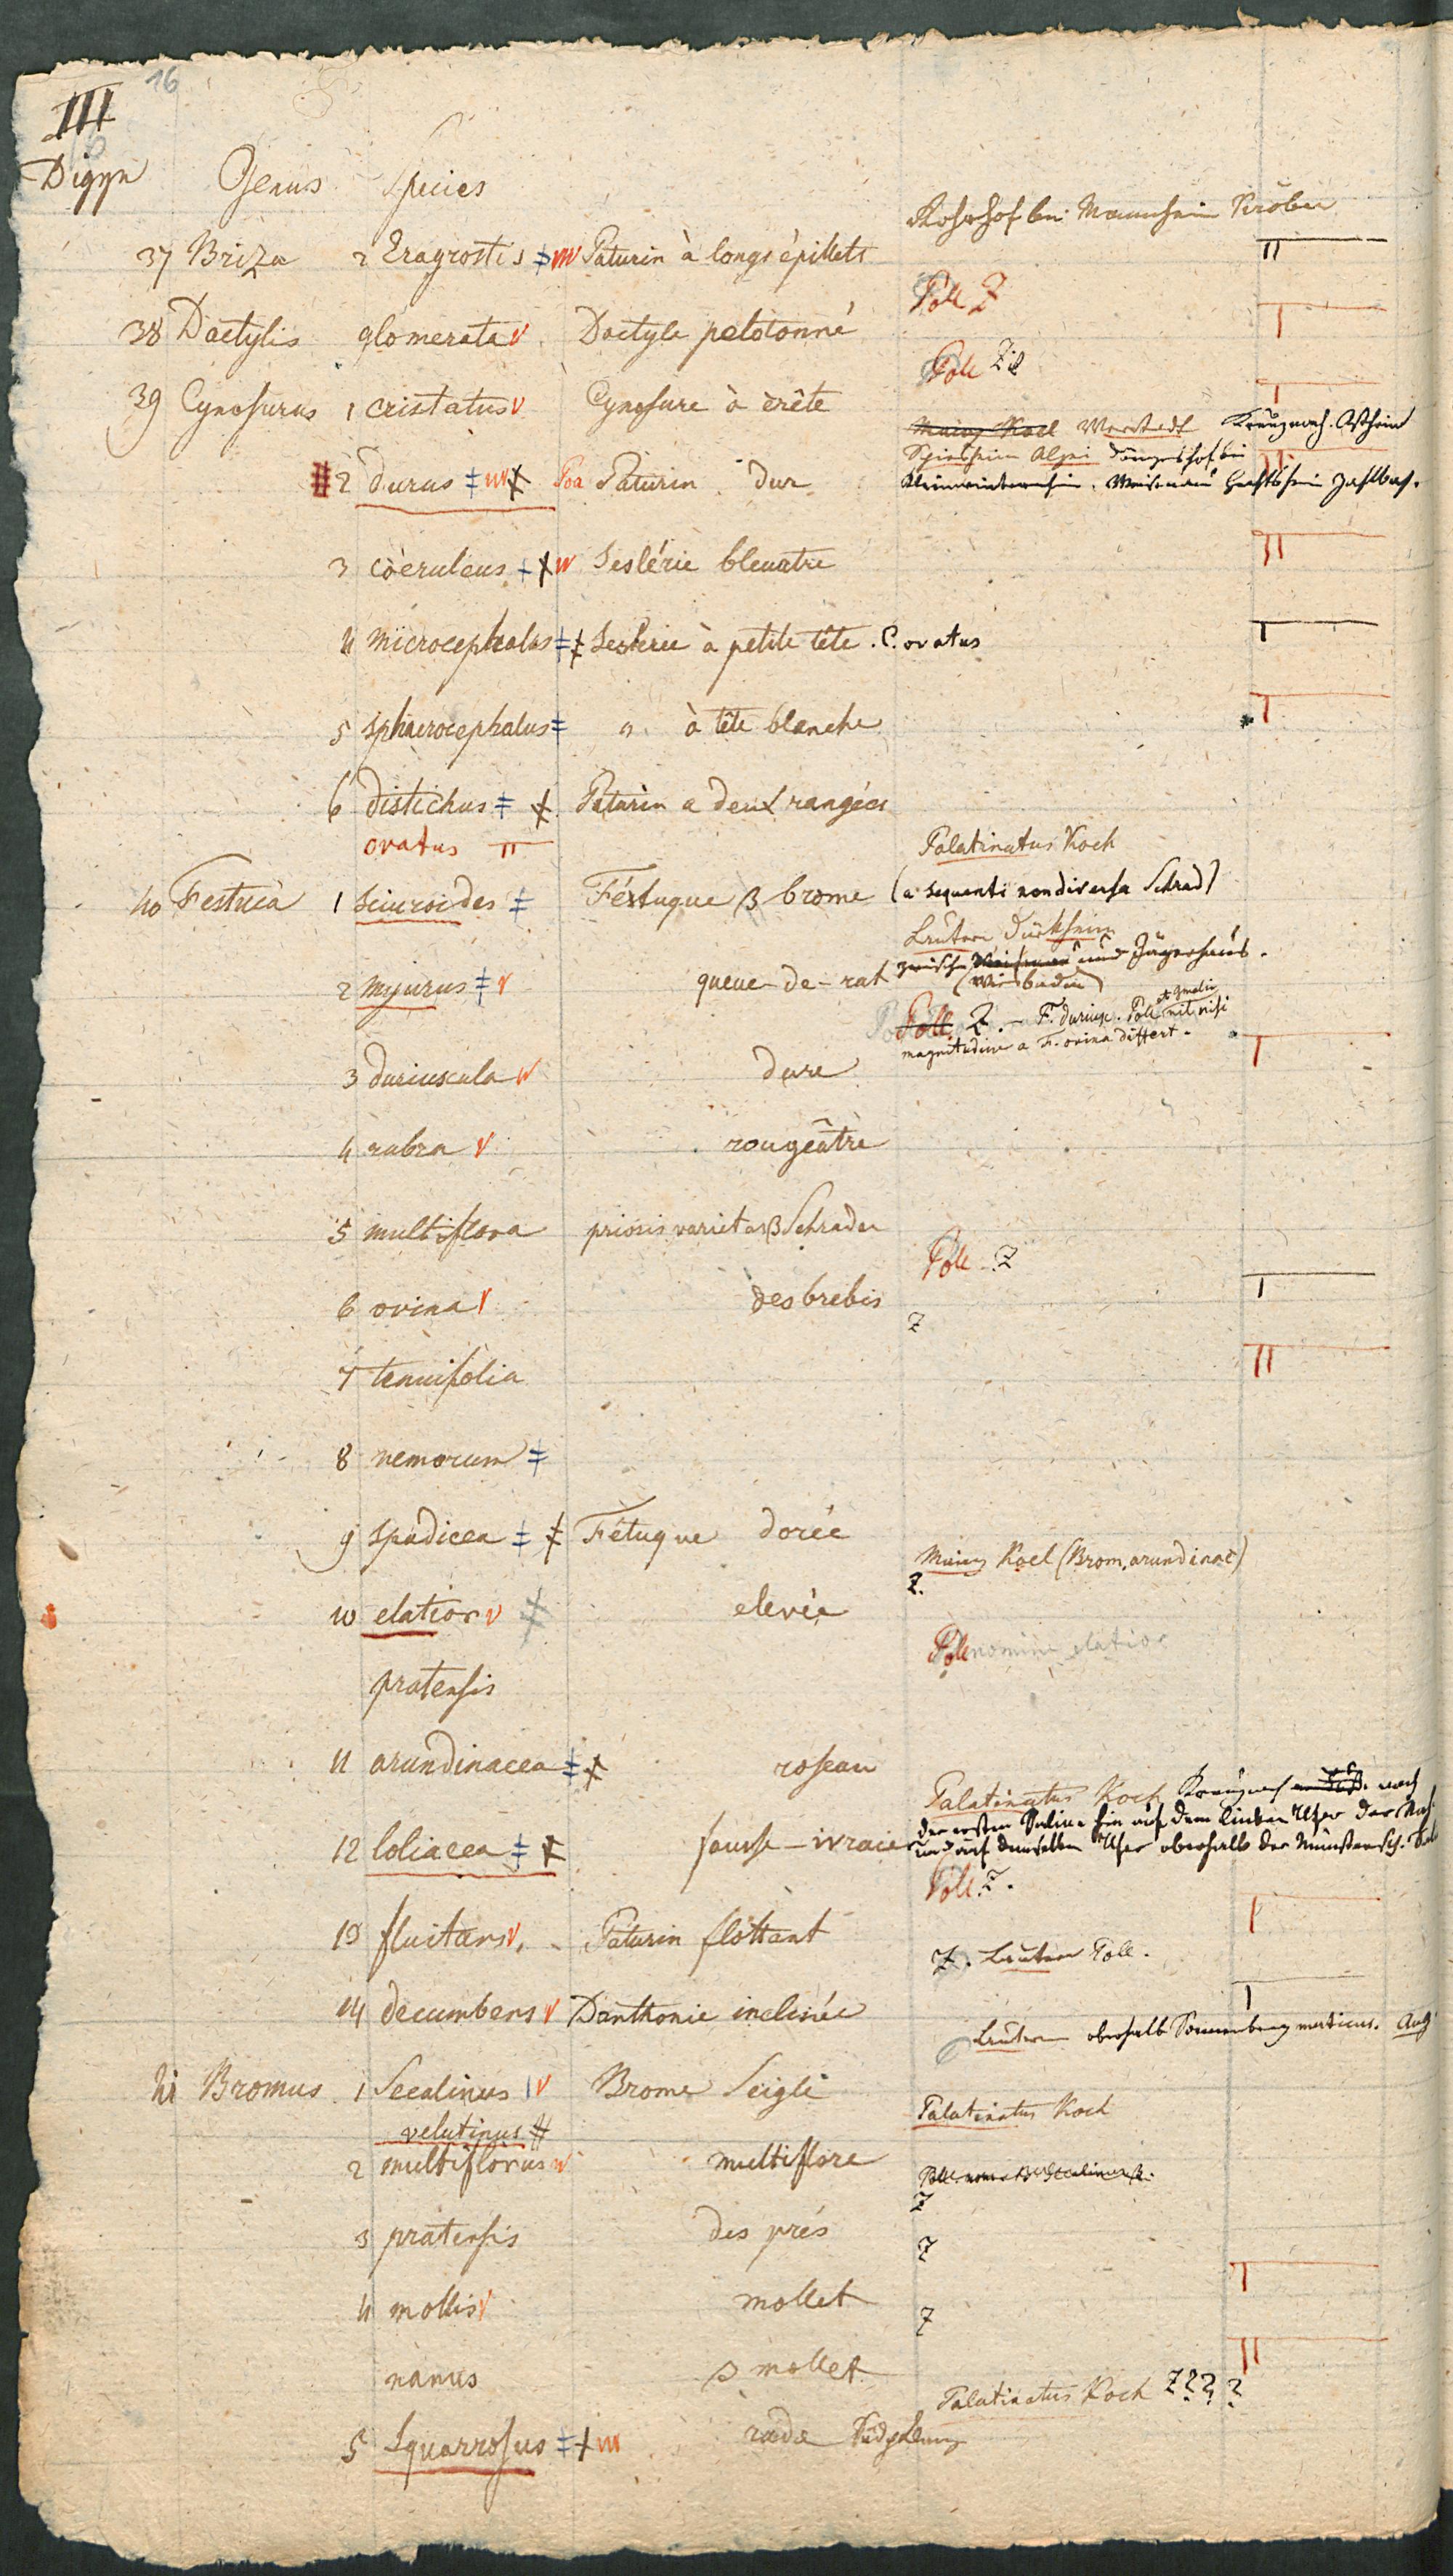 16
III
Digyn Genus Species
Rohrhof bei Mannheim Kröber
37 Briza 2 Eragrostis ‡ w Paturin à longs épillets
Poll Z
38 Dactylis glomerata v Dactyle pelotonné
Poll Z
39 Cynosurus 1 cristatus v Cynosure à crête
Mainz Koel Kreuznach
Alzei
# 2 durus ‡ w ⚹ Poa Paturin dur
3 coeruleus + ⚹ w Seslérie bleuatre
4 microcephalus ‡ ⚹ Seslerie à petite tête . C. ovatus
5 sphaerocephalus ‡ " à tête blanche
6 distichus ‡ ⚹ Paturin a deux rangées
ovatus
Palatinatus Koch
40 Festuca 1 sciuroides ‡ Féstuque β brome (a sequenti non diversa Schrad)
Lautern Dürkheim
und Jägerhaus.
2 myurus ‡ v queue-de-rat (Wiesbaden)
Poll Z. – F. duriusc. Poll nil nisi
magnitudine a F. ovina differt.
3 duriuscula v dure
4 rubra v rougeâtre
5 multiflora prioris varietas β Schrader
Poll Z
6 ovina v des brebis
Z
7 tenuifolia
8 nemorum ‡
9 spadicea ‡ ⚹ Fétuque dorée
Mainz Koel (Brom. arundinac)
Z.
10 elatior v ⚹ elevée
Poll nomine elatior
pratensis
11 arundinacea ‡ ⚹ roseau
Palatinatus Koch Kreuznach nach
der ersten Saline hin auf dem linken Ufer der Nah
12 loliacea ‡ ⚹ fausse-ivraie und auf demselben Ufer oberhalb der Münstersch. Sal
Poll. Z.
13 fluitans v. Paturin flottant
Z. Lautern Poll.
14 decumbens v Danthonie inclinée
Lautern oberhalb Sonnenberg muticus. Aug
41 Bromus 1 Secalinus v Brome Seigle
Palatinatus Koch
velutinus #
2 multiflorus v multiflore
Z
3 pratensis des prés
Z
4 mollis v mollet
Z
nanus β mollet
Palatinatus Koch Z???
5 Squarrosus ‡ + w rude